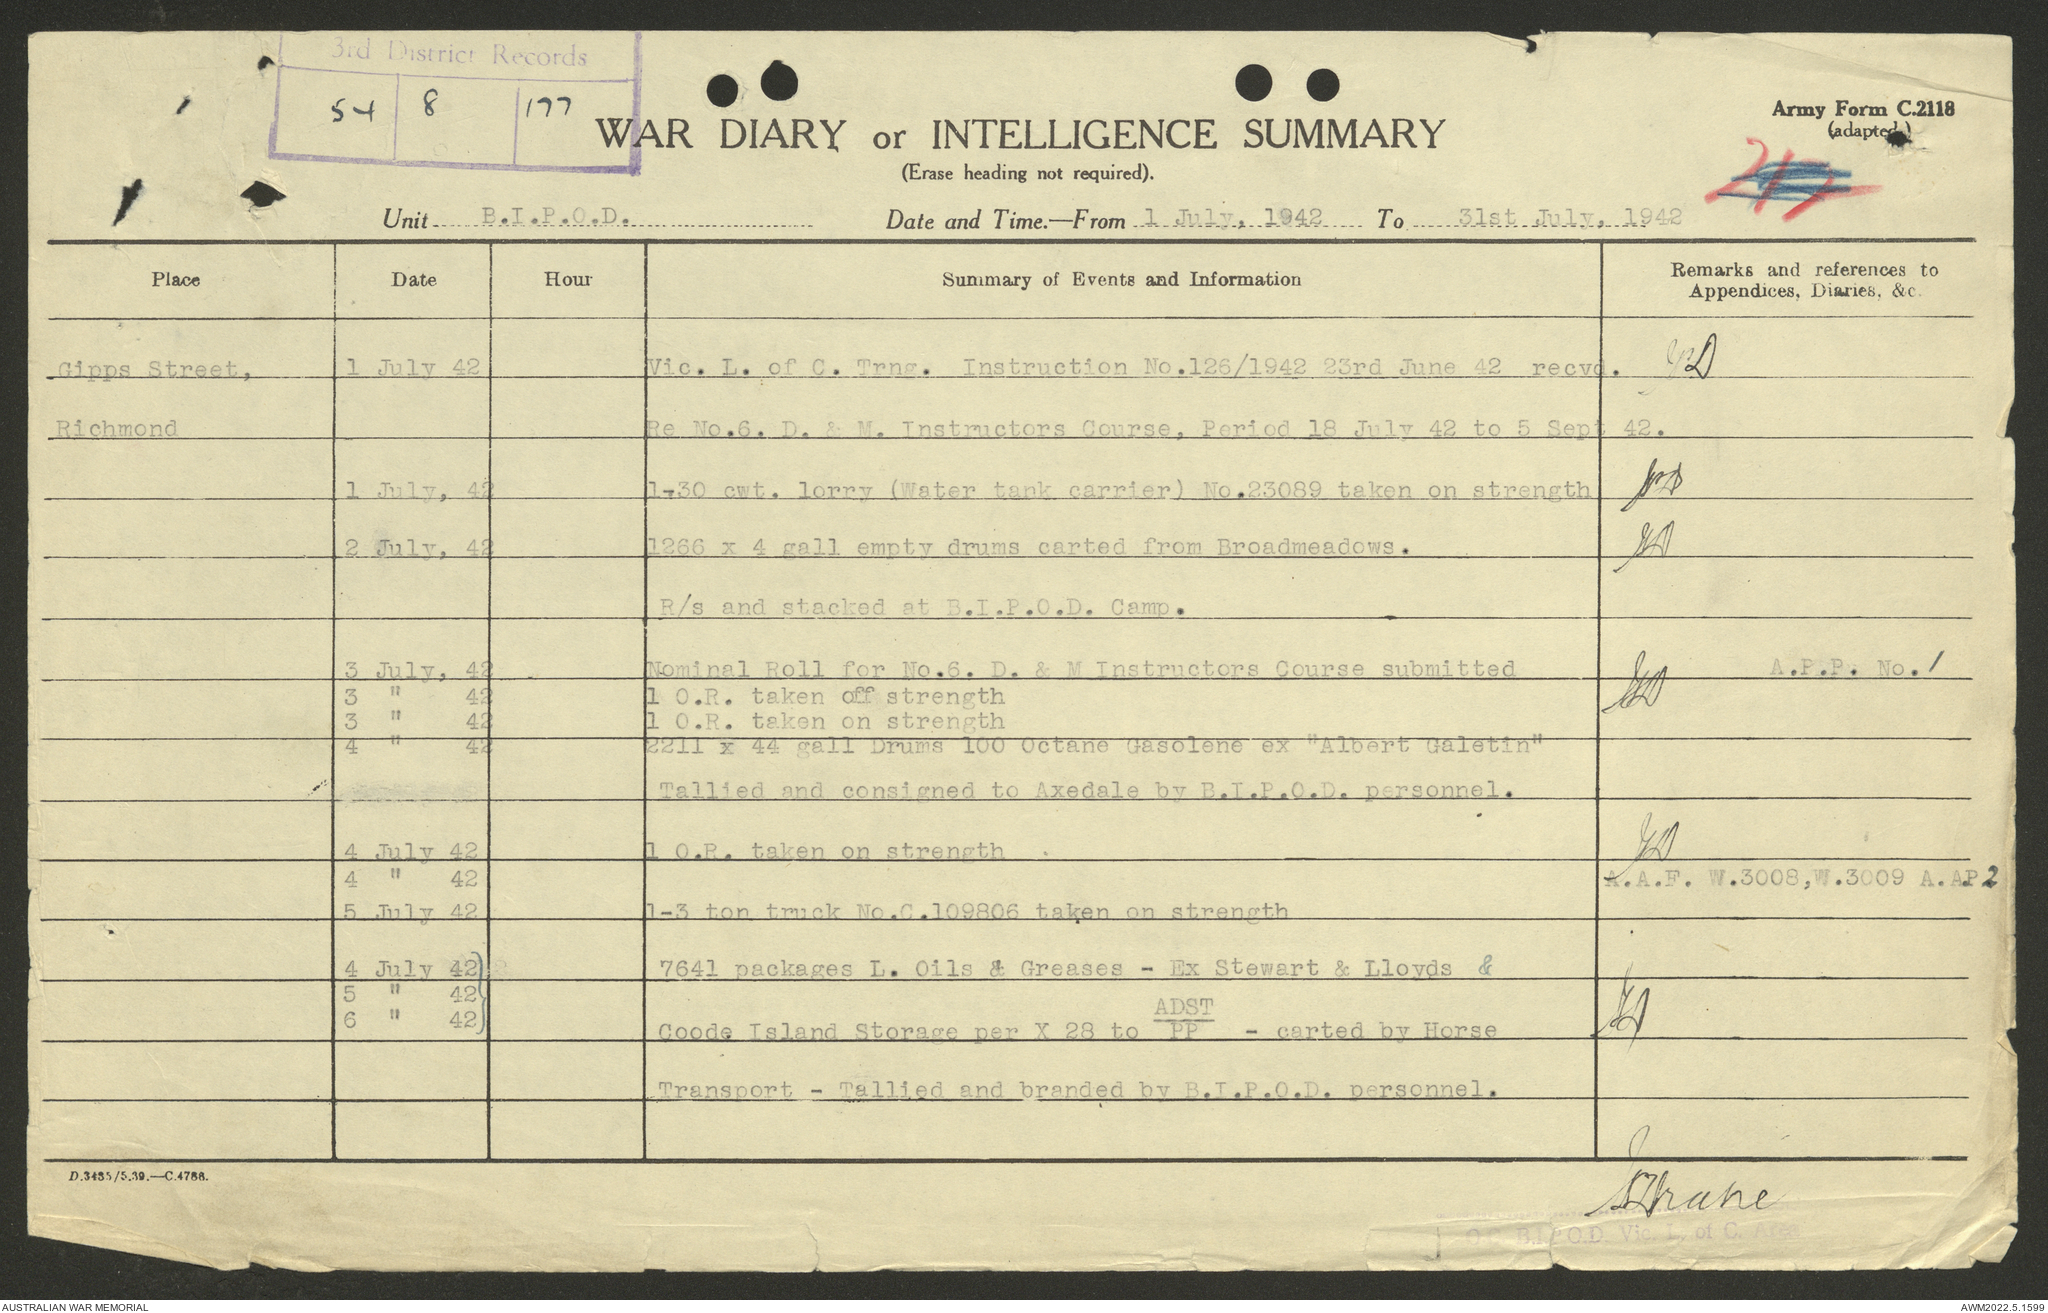 3rd District Records
54 8 177
WAR DIARY or INTELLIGENCE SUMMARY
(Erase heading not required).
Army Form C.2118
(adapted)
Unit B.I.P.O.D. Date and Time.—From 1 July, 1942 To 31st July, 1942
Place Date Hour Summary of Events and Information Remarks and references to
Appendices, Diaries, &c.
Gipps Street, 1 July 42 Vic. L. of C. Trng. Instruction No.126/1942 23rd June 42 recvd.
Richmond Re No.6. D. & M. Instructors Course, Period 18 July 42 to 5 Sept 42.
1 July, 42 1-30 cwt. lorry (Water tank carrier) No.23089 taken on strength
2 July, 42 1266 x 4 gall empty drums carted from Broadmeadows.
R/s and stacked at B.I.P.O.D. Camp.
3 July, 42 Nominal Roll for No.6. D. & M Instructors Course submitted A.P.P. No. 1
3 " 42 1 O.R. taken off strength
3 " 42 1 O.R. taken on strength
4 " 42 2211 x 44 gall Drums 100 Octane Gasolene ex "Albert Galetin"
Tallied and consigned to Axedale by B.I.P.O.D. personnel.
4 July 42 1 O.R. taken on strength
4 " 42 A.A.F. W.3008,W.3009 A.AP2
5 July 42 1-3 ton truck No.C.109806 taken on strength
4 July 42 7641 packages L. Oils & Greases - Ex Stewart & Lloyds &
5 " 42
6 " 42 Coode Island Storage per X 28 to ADST/PP - carted by Horse
Transport - Tallied and branded by B.I.P.O.D. personnel.
D.3435/5.39.—C.4788.
O.C. B.I.P.O.D. Vic. L. of C. Area
AUSTRALIAN WAR MEMORIAL AWM2022.5.1599